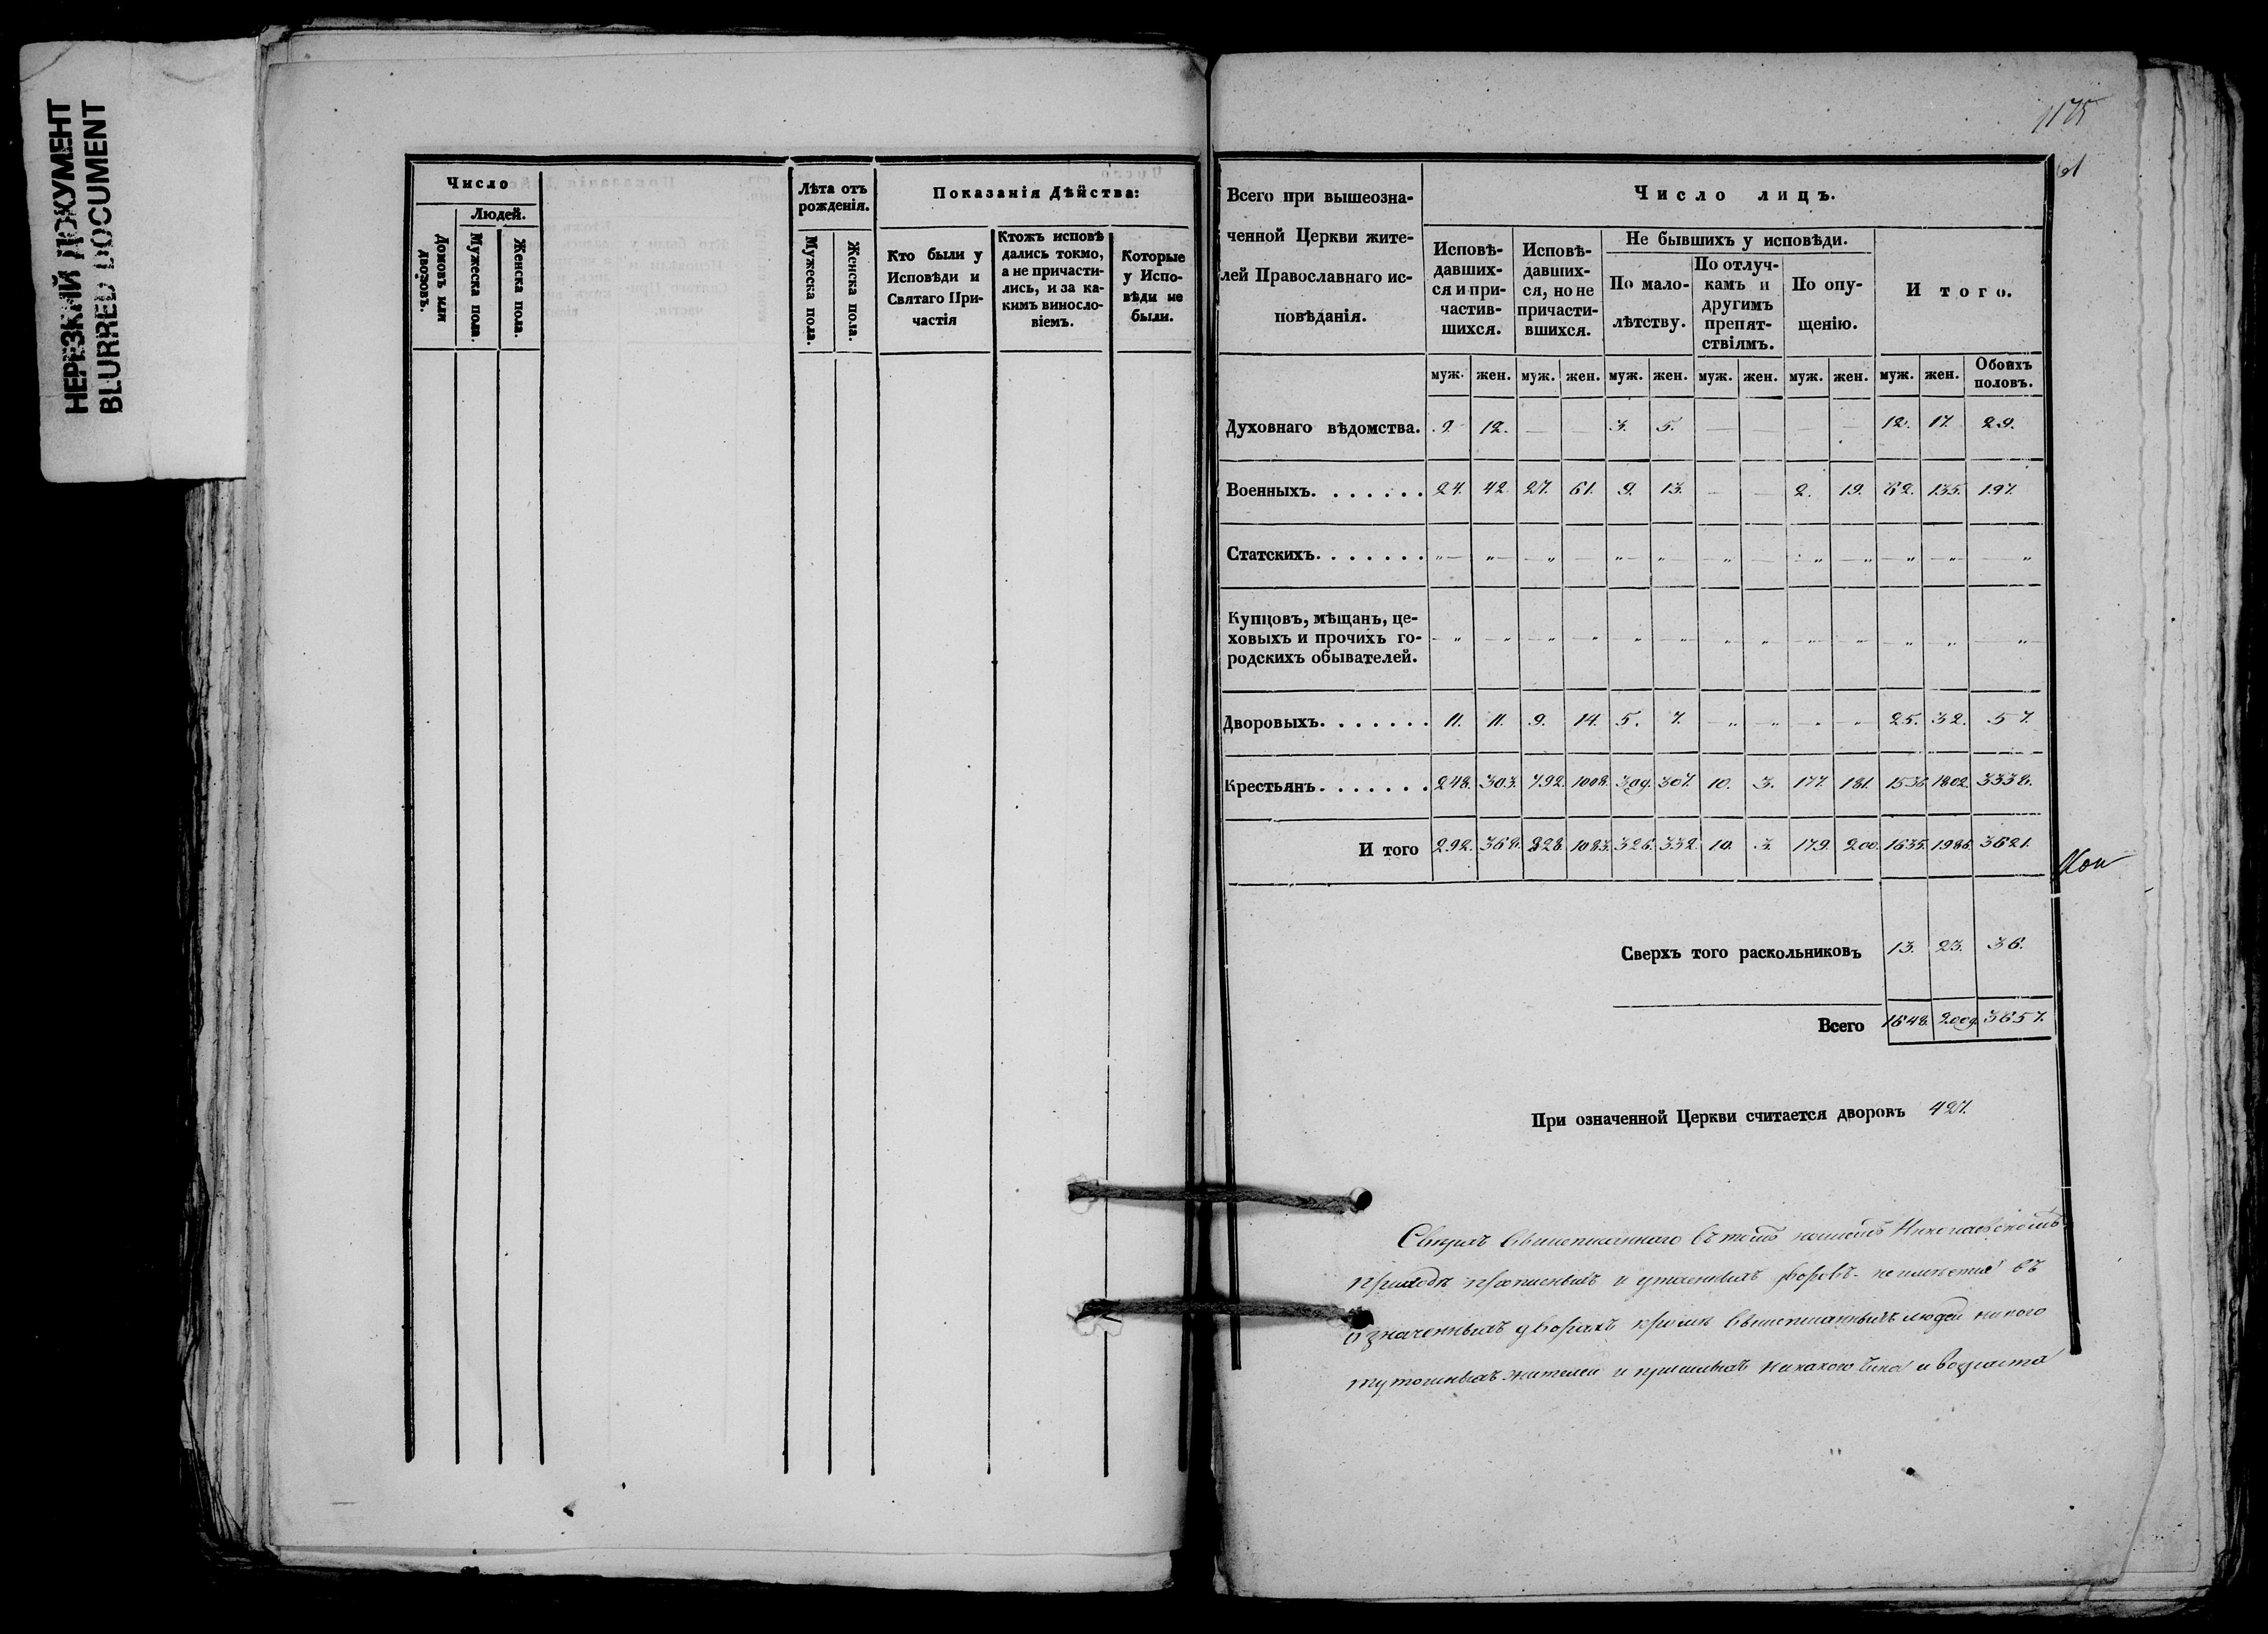 НЕРЕЗКИЙ ДОКУМЕНТ
BLURRED DOCUMENT
Число
Людей.
Домовъ или дворовъ.
Мужеска пола.
Женска пола.
Лѣта отъ рожденія.
Мужеска пола.
Женска пола.
Показанія Дѣйства:
Кто были у
Исповѣди и
Святаго При-
частія
Ктожъ исповѣ
дались токмо,
а не причасти-
лись, и за ка-
кимъ винослo-
віемъ.
Которые
у Испо-
вѣди не
были.
1175
Всего при вышеозна-
ченной Церкви жите-
лей Православнаго ис-
повѣданія.
Число лицъ.
Исповѣ-
давших-
ся и при-
частив-
шихся.
Исповѣ-
давших-
ся, но не
причасти-
вшихся.
Не бывшихъ у исповѣди.
По мало-
лѣтству.
По отлуч-
камъ и
другимъ
препят-
ствіямъ.
По опу-
щенію.
Итого.
муж. жен. муж. жен. муж. жен. муж. жен. муж. жен. муж. жен. Обоихъ половъ.
Духовнаго вѣдомства. 9. 12. — — 3. 5. — — — — 12. 17. 29.
Военныхъ. . . . . . . 24. 42. 27. 61. 9. 13. — — 2. 19. 62. 135. 197.
Статскихъ. . . . . . . „ „ „ — „ „ „ — „ „ „ „ „
Купцовъ, мѣщанъ, це-
ховыхъ и прочихъ го-
родскихъ обывателей. „ „ „ „ „ „ „ „ „ „ „ „ „
Дворовыхъ. . . . . . . 11. 11. 9. 14. 5. 7. „ „ „ „ 25. 32. 57.
Крестьянъ. . . . . . . 248. 303. 792. 1008. 309. 307. 10. 3. 177. 181. 1536. 1802. 3338.
И того 292. 368. 828. 1083. 326. 332. 10. 3. 179. 200. 1635. 1986. 3621.
Сверхъ того раскольниковъ 13. 23. 36.
Всего 1648. 2009. 3657.
При означенной Церкви считается дворовъ 427.
Сверхъ вышеписаннаго въ томъ нашемъ Николаевскомъ
приходѣ прописныхъ и утаенныхъ дворовъ не имѣется въ
означенныхъ дворахъ кромѣ вышеписанныхъ людей никого
тутошныхъ жителей и пришлыхъ никакого чина и возраста